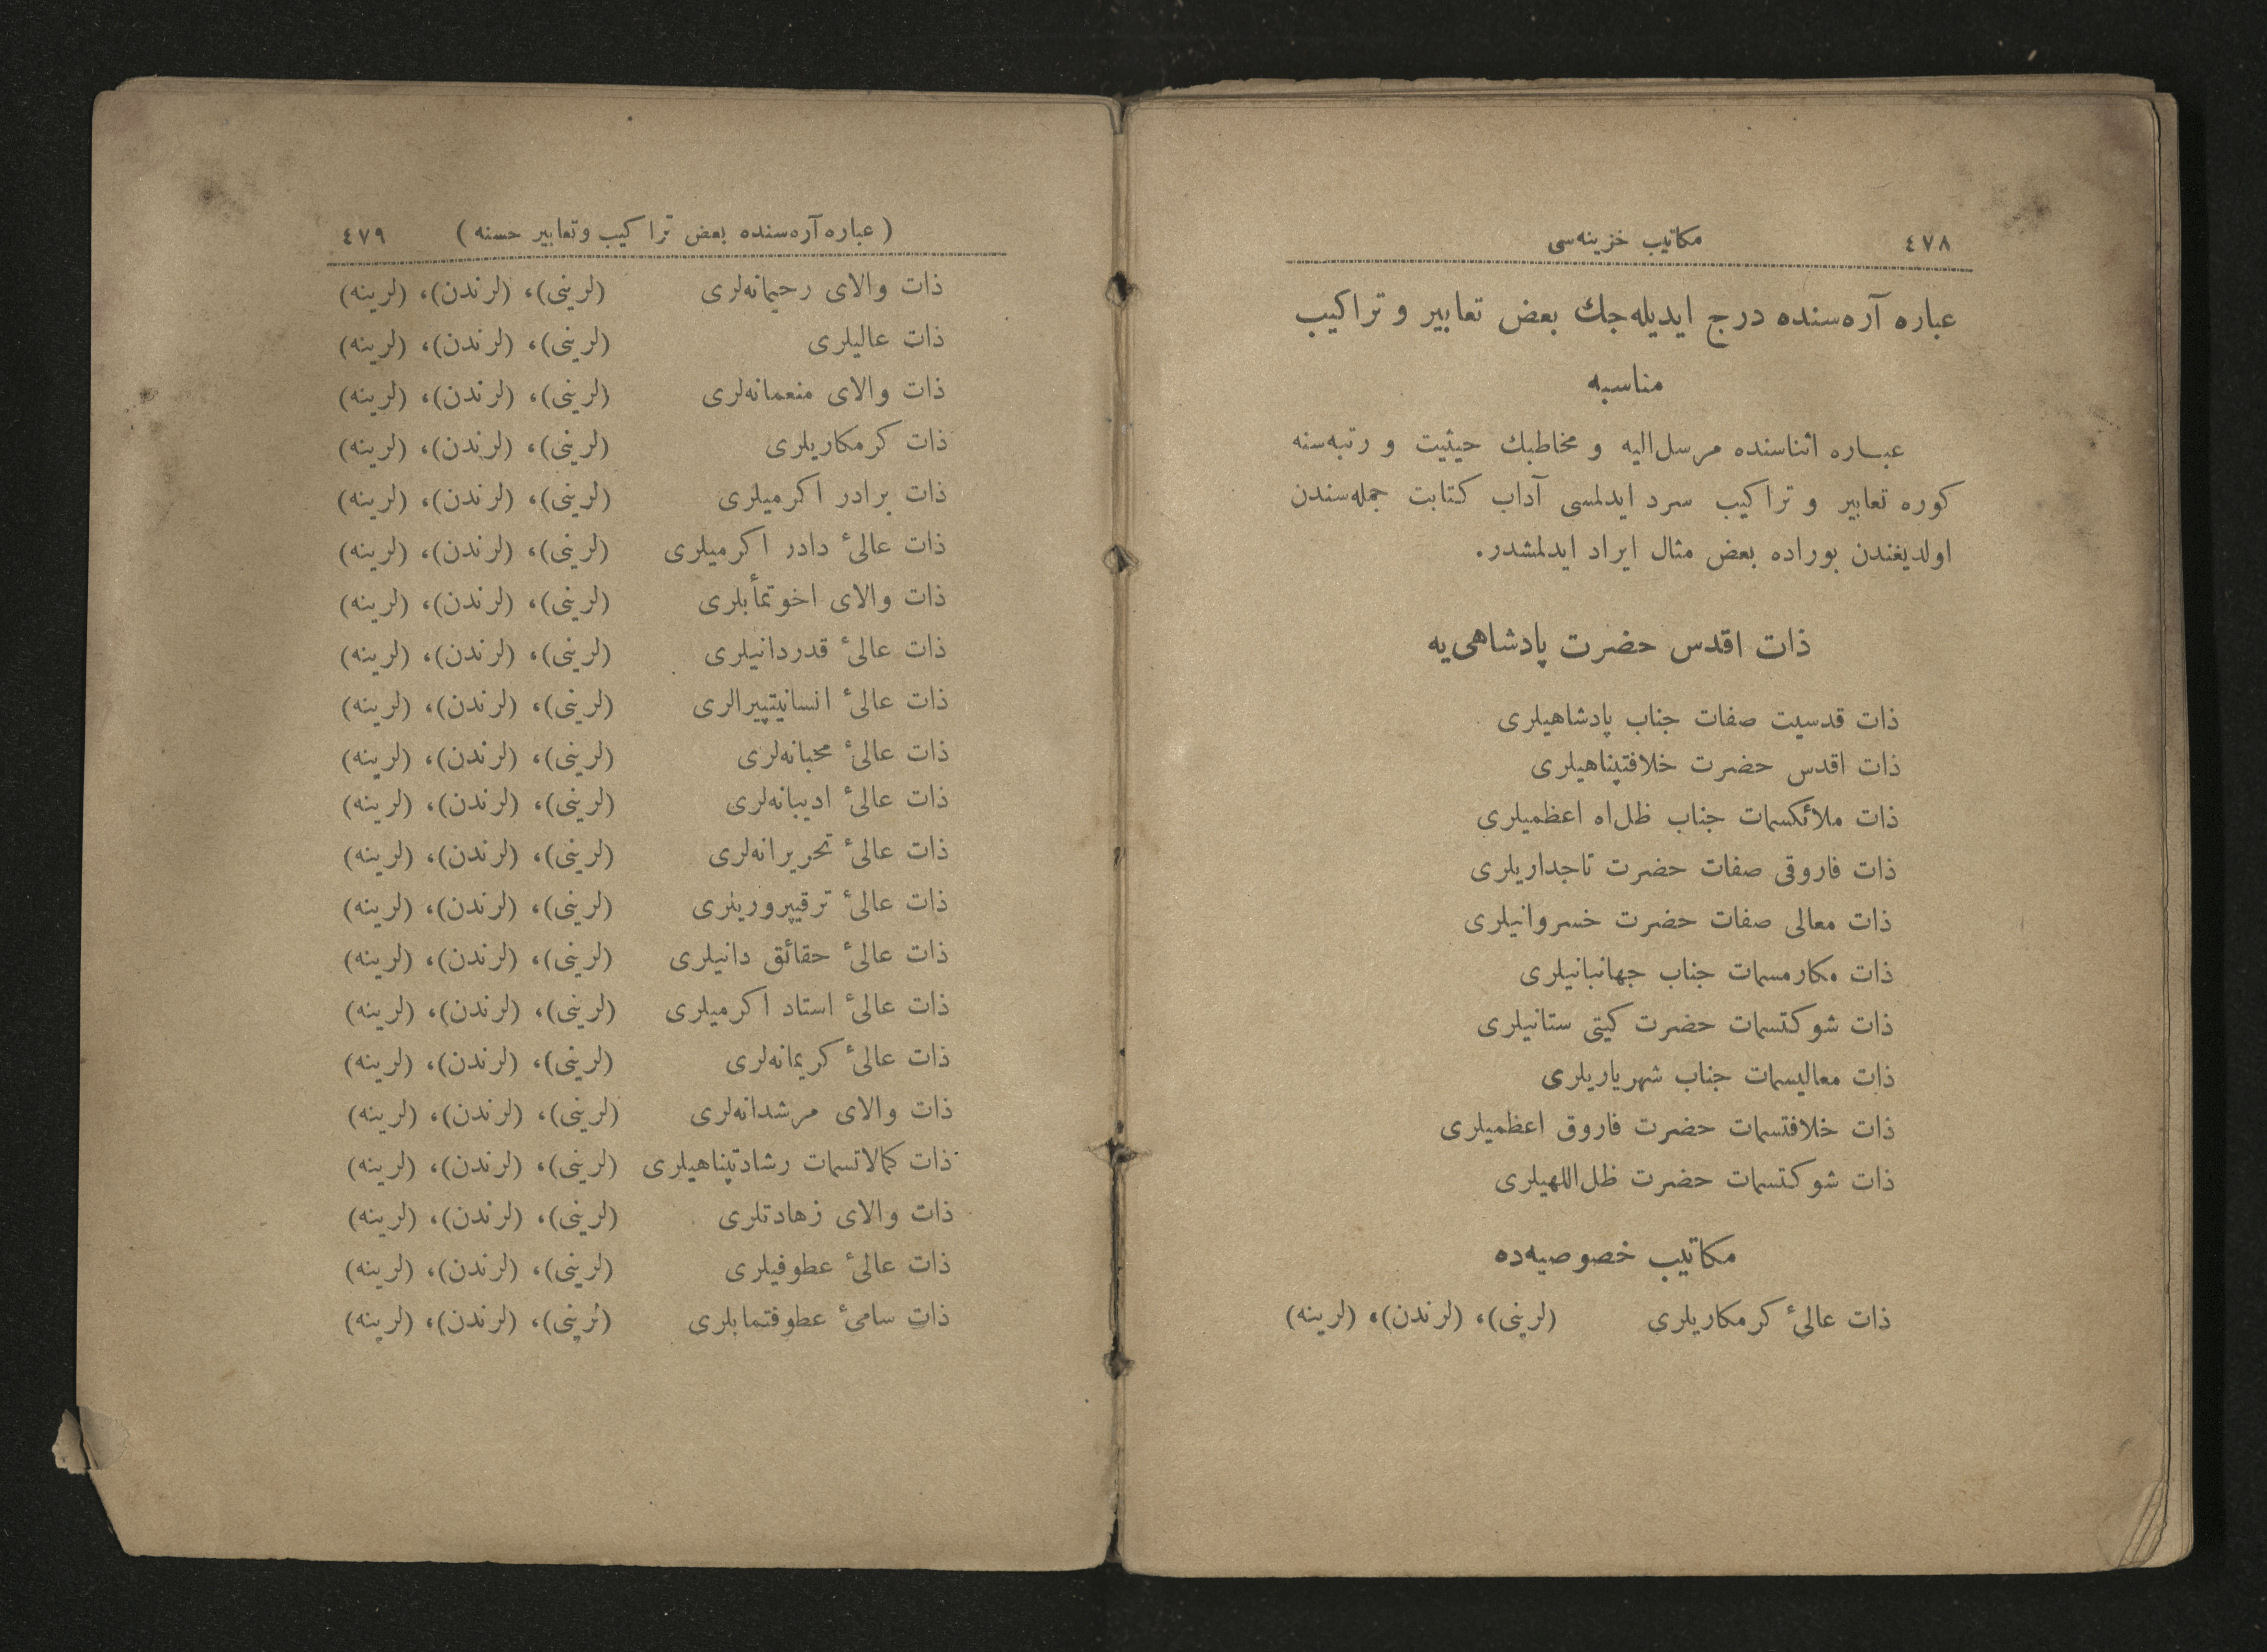 ٤٧٨ مكاتيب خزينه‌سی
عباره آره‌سنده درج ايديله‌جك بعض تعابير و تراكيب
مناسبه
عباره اثناسنده مرسل‌اليه و مخاطبك حيثيت و رتبه‌سنه
كوره تعابير و تراكيب سرد ايدلمسی آداب كتابت جمله‌سندن
اولديغندن بوراده بعض مثال ايراد ايدلمشدر.
ذات اقدس حضرت پادشاهی‌يه
ذات قدسيت صفات جناب پادشاهيلری
ذات اقدس حضرت خلافتپناهيلری
ذات ملائكسمات جناب ظل‌اه اعظميلری
ذات فاروقی صفات حضرت تاجداريلری
ذات معالی صفات حضرت خسروانيلری
ذات مكارمسمات جناب جهانبانيلری
ذات شوكتسمات حضرت كيتی ستانيلری
ذات معاليسمات جناب شهرياريلری
ذات خلافتسمات حضرت فاروق اعظميلری
ذات شوكتسمات حضرت ظل‌اللهيلری
مكاتيب خصوصيه‌ده
ذات عالیٔ كرمكاريلری (لرينی)، (لرندن)، (لرينه)
(عباره آره‌سنده بعض تراكيب وتعابير حسنه) ٤٧٩
ذات والای رحيمانه‌لری (لرينی)، (لرندن)، (لرينه)
ذات عاليلری (لرينی)، (لرندن)، (لرينه)
ذات والای منعمانه‌لری (لرينی)، (لرندن)، (لرينه)
ذات كرمكاريلری (لرينی)، (لرندن)، (لرينه)
ذات برادر اكرميلری (لرينی)، (لرندن)، (لرينه)
ذات عالیٔ دادر اكرميلری (لرينی)، (لرندن)، (لرينه)
ذات والای اخوتمأبلری (لرينی)، (لرندن)، (لرينه)
ذات عالیٔ قدردانيلری (لرينی)، (لرندن)، (لرينه)
ذات عالیٔ انسانيتپيرالری (لرينی)، (لرندن)، (لرينه)
ذات عالیٔ محبانه‌لری (لرينی)، (لرندن)، (لرينه)
ذات عالیٔ اديبانه‌لری (لرينی)، (لرندن)، (لرينه)
ذات عالیٔ تحريرانه‌لری (لرينی)، (لرندن)، (لرينه)
ذات عالیٔ ترقيپروريلری (لرينی)، (لرندن)، (لرينه)
ذات عالیٔ حقائق دانيلری (لرينی)، (لرندن)، (لرينه)
ذات عالیٔ استاد اكرميلری (لرينی)، (لرندن)، (لرينه)
ذات عالیٔ كريمانه‌لری (لرينی)، (لرندن)، (لرينه)
ذات والای مرشدانه‌لری (لرينی)، (لرندن)، (لرينه)
ذات كمالاتسمات رشادتپناهيلری (لرينی)، (لرندن)، (لرينه)
ذات والای زهادتلری (لرينی)، (لرندن)، (لرينه)
ذات عالیٔ عطوفيلری (لرينی)، (لرندن)، (لرينه)
ذات سامیٔ عطوفتمابلری (لرينی)، (لرندن)، (لرينه)